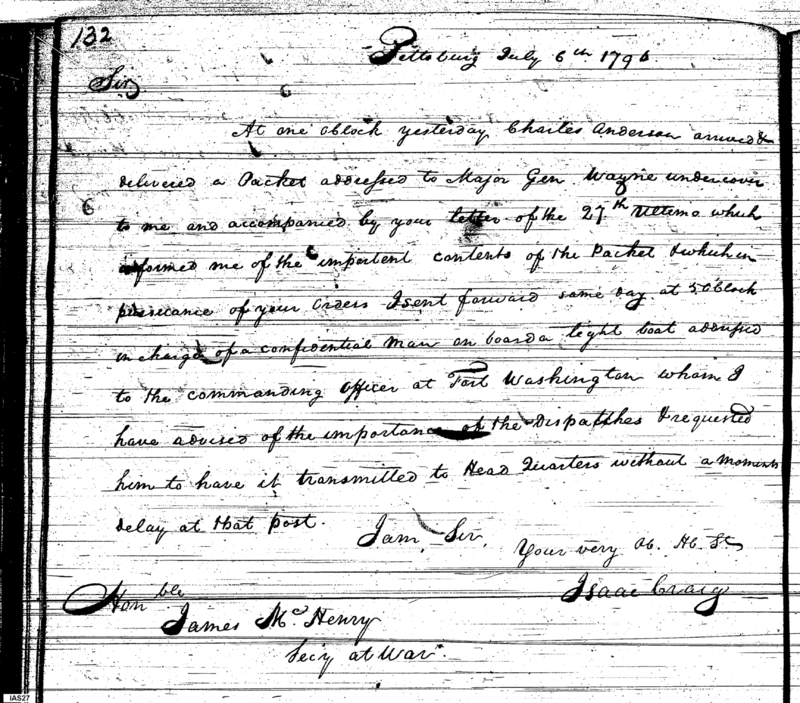 132
Pittsburg July 6th 1796
Sir
At one oClock yesterday, Charles Anderson arrived &
delivered a Packet addressed to Major Gen Wayne undercover
to me and accompanied by your letter of the 27th Ultimo which
informed me of the important contents of the Packet & which in
pursuance of your Orders I sent forward same day at 5 OClock
in charge of a confidential Man on board a light boat addressed
to the commanding officer at Fort Washington whom I
have advised of the importance of the Dispatches & requested
him to have it transmitted to Head Quarters without a moments
delay at that post.
I am, Sir,
Your very Ob. Hb. St
Isaac Craig
Honble
James Mc Henry
Secy at War.
IAS27